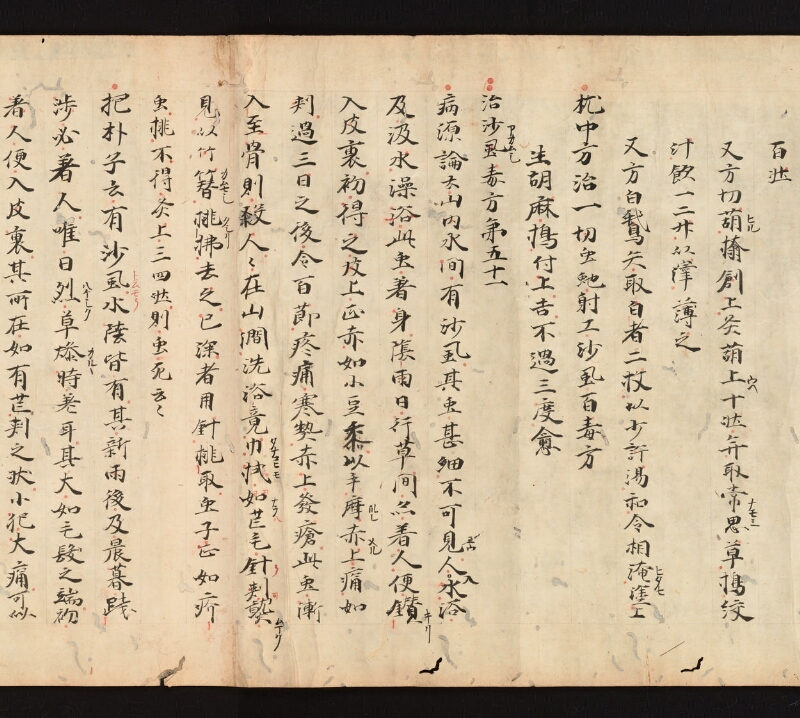 百壯
又方切葫搽創上灸葫上十壯并取常思草搗絞
汁飲一二升以滓薄之
又方白鵝矢取白者二枚以少許湯和令相淹塗工
枕中方治一切虫虵射工沙虱百毒方
生胡麻搗付上吉不過三度愈
治沙虱毒方第五十一
病源論云山內水間有沙虱其虫甚細不可見人入水浴
及汲水澡浴此虫著身陰雨日行草間亦著人便鑽
入皮裏初得之皮上正赤如小豆黍以手摩赤上痛如
刺過三日之後令百節疼痛寒熱赤上發瘡此虫漸
入至骨則殺人〻在山澗洗浴竟巾拭如芒毛針刺熱
見以竹簪挑拂去之已深者用針挑取虫子正如疥
虫挑不得灸上三四壯則虫死云〻
抱朴子云有沙虱水陸皆有其新雨後及晨暮踐
涉必著人唯日烈草燥時差耳其大如毛髮之端初
著人便入皮裏其所在如有芒刺之狀小犯大痛可以